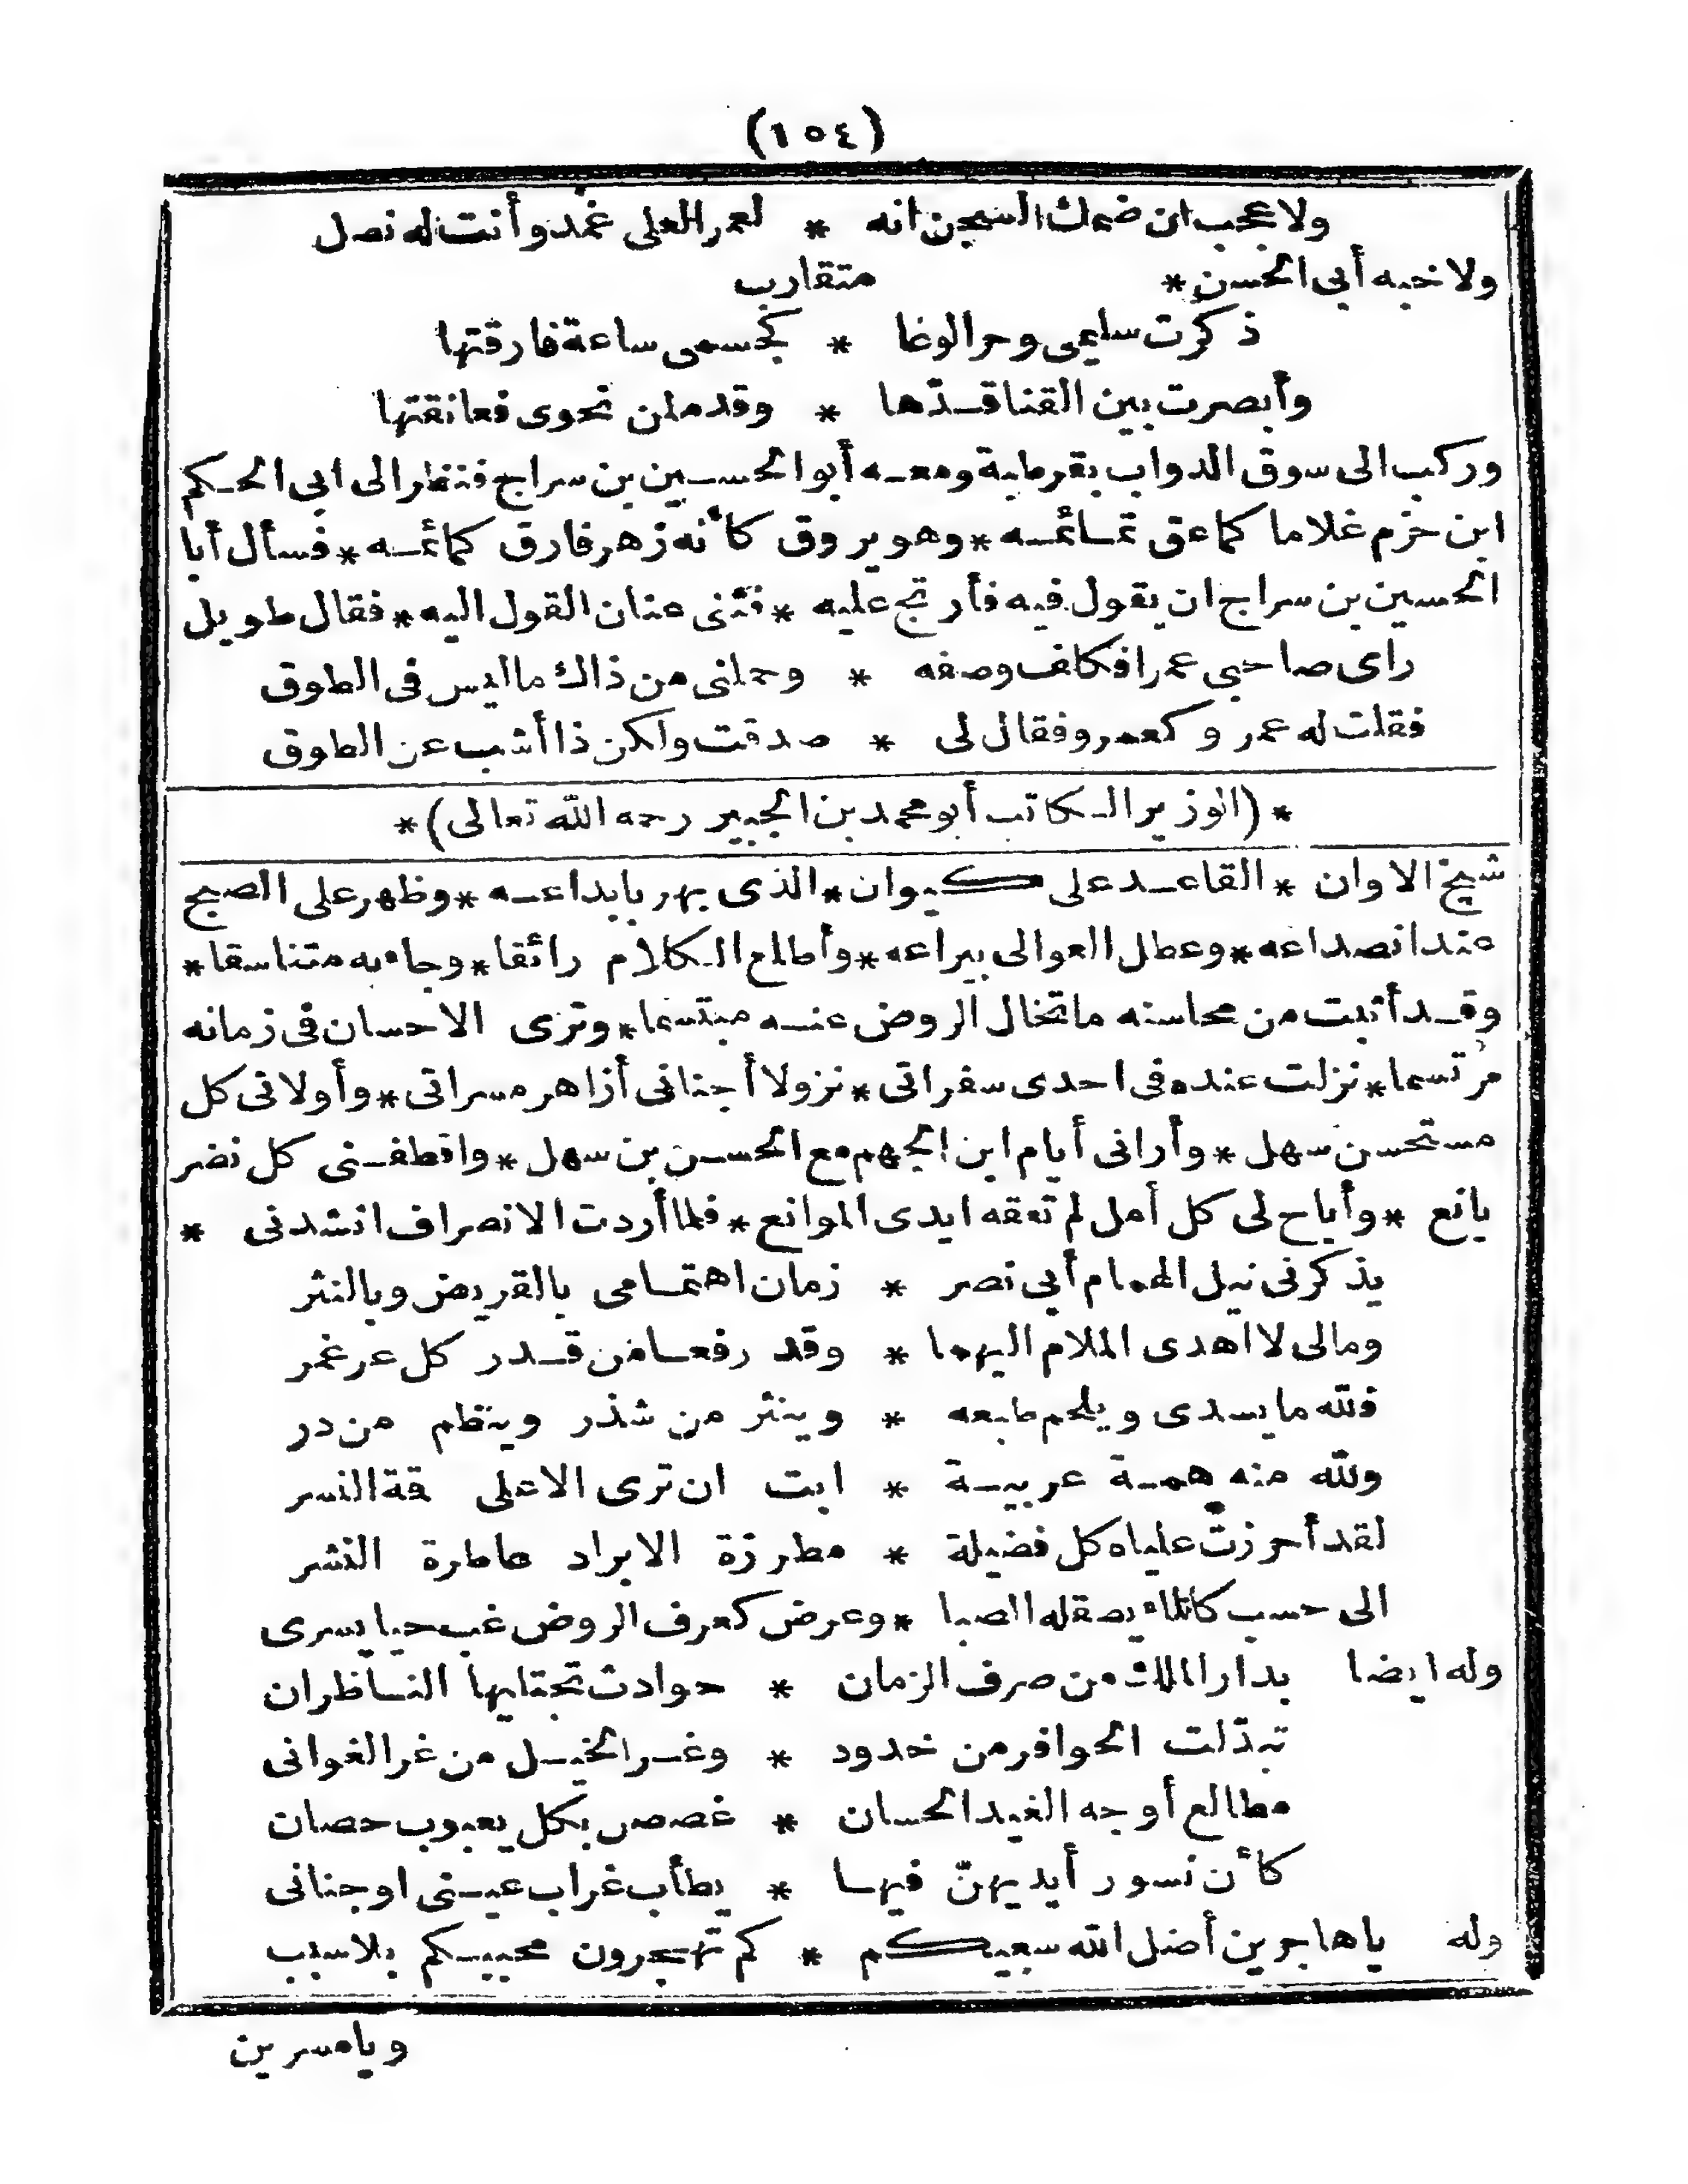 (١٥٤)
ولا عجب ان ضمك السجن انه * لعمر العلى غمد وأنت له نصل
ولاخيه أبى الحسن * متقارب
ذكرت سليمى وحر الوغا * كجسمى ساعة فارقتها
وأبصرت بين القنا قدّها * وقد ملن نحوى فعانقتها
وركب الى سوق الدواب بقرطبة ومعه أبوالحسين بن سراج فنظر الى ابى الحكم
ابن حزم غلاما كما عق تمائمه * وهو يروق كأنه زهر فارق كمائمه * فسأل أبا
الحسين بن سراج ان يقول فيه فأرتج عليه * فثنى عنان القول اليه * فقال طويل
راى صاحبى عمرا فكلف وصفه * وحملنى من ذاك ما ليس فى الطوق
فقلت له عمرو كعمرو فقال لى * صدقت ولكن ذا أشب عن الطوق
* (الوزير الكاتب أبو محمد بن الجبير رحمه الله تعالى) *
شيخ الاوان * القاعد على كيوان * الذى بهر بابداعه * وظهر على الصبح
عند انصداعه * وعطل العوالى بيراعه * وأطلع الكلام رائقا * وجاء به متناسقا *
وقد أثبت من محاسنه ما تخال الروض عنه مبتسما * وترى الاحسان فى زمانه
مرتسما * نزلت عنده فى احدى سفراتى * نزولا أجنانى أزاهر مسراتى * وأولانى كل
مستحسن سهل * وأرانى أيام ابن الجهم مع الحسن بن سهل * واقطفنى كل نضر
يانع * وأباح لى كل أمل لم تعقه ايدى الموانع * فلما أردت الانصراف انشدنى *
يذكرنى نيل الهمام أبى نصر * زمان اهتمامى بالقريض وبالنثر
ومالى لا اهدى الملام اليهما * وقد رفعا من قدر كل عر غمر
فلله ما يسدى ويلحم طبعه * وينثر من شذر وينظم من در
ولله منه همة عربية * ابت ان ترى الاعلى قة النسر
لقد أحرزت علياه كل فضيلة * مطرزة الابراد عاطرة النشر
الى حسب كالماء يصقله الصبا * وعرض كعرف الروض غب حيا يسرى
وله ايضا بدار الملك من صرف الزمان * حوادث تجتليها الناظران
تبدّلت الحوافر من خدود * وغر الخيل من غر الغوانى
مطالع أوجه الغيد الحسان * غصص بكل يعبوب حصان
كأن نسور أيديهنّ فيها * يطأب غراب عينى اوجنانى
وله يا هاجرين أضل الله سعيكم * كم تهجرون محبيكم بلا سبب
ويامسرين